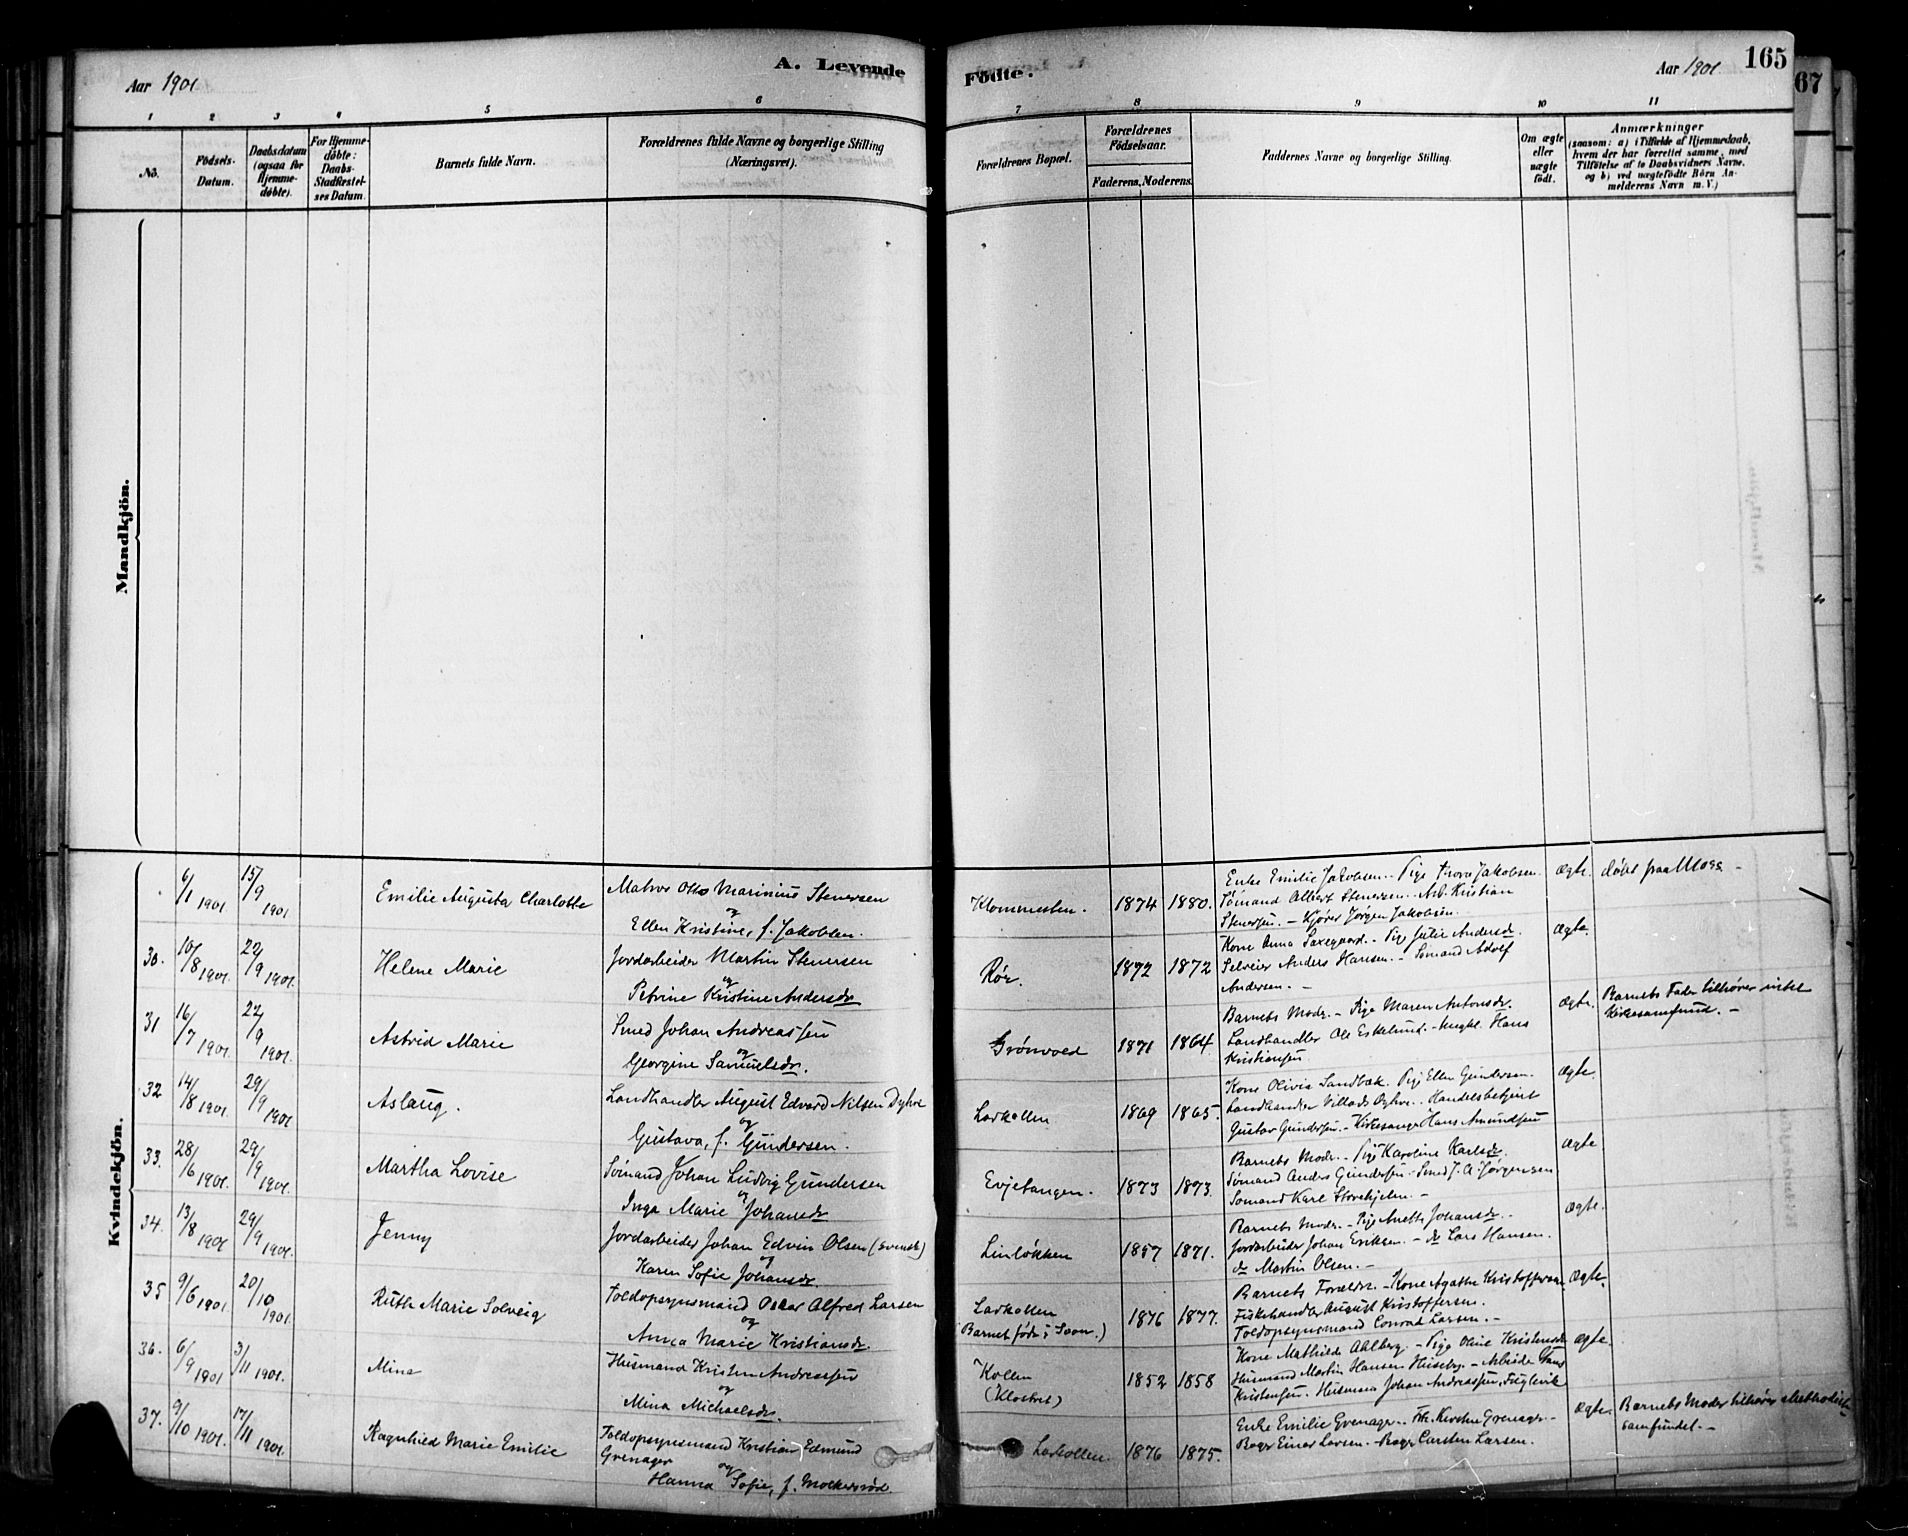 Aar 1901
A. Levende
Fødte.
Aar 1901
165
67
1 2 3 4 5 6 7 8 9 10 11
No.
Födsels-
Datum.
Daabsdatum
(ogsaa for
Hjemme-
döbte).
For Hjemme-
döbte:
Daabs-
Stadfæstel-
ses Datum.
Barnets fulde Navn.
Forældrenes fulde Navne og borgerlige Stilling
(Næringsvei).
Forældrenes Bopæl.
Forældrenes
Födselsaar.
Faderens. Moderens.
Faddernes Navne og borgerlige Stilling.
Om ægte
eller
uægte
født.
Anmærkninger
(saasom: a) i Tilfælde af Hjemmedaab,
hvem der har forrettet samme, med
Tilføielse af to Daabsvidners Navne,
og b) ved uægtefödte Börn An-
melderens Navn m. V.)
Mandkjön.
Kvindekjön.
6/1 1901. 15/9 1901. Emilie Augusta Charlotte
Matros Otto Marinius Stenersen
og
Ellen Kristine, f. Jakobsen.
Klommesten. 1874 1880.
Enke Emilie Jakobsen. - Pige Thora Jakobsen.
Sømand Albert Stenersen. Arb. Kristian
Stenersen. - Kjører Jørgen Jakobsen.
Ægte. døbt paa Moss -
30. 10/8 1901. 22/9 1901. Helene Marie
Jordarbeider Martin Stenersen
og
Petrine Kristine Andersdr
Rør. 1872 1872
Kone Anna Saxegaard. - Pige Julie Andersdr.
Selveier Anders Hansen. - Sømand Adolf
Andersen. -
Ægte.
31 16/7 1901. 22/9 1901. Astrid Marie
Smed Johan Andreassen
og
Georgine Samuelsdr.
Grønvold 1871 1864.
Barnets Moder. - Pige Maren Antonsdr.
Landhandler Ole Eskelund. - Ungkl. Hans
Kristiansen
Ægte. Barnets Fader tilhører intet
Kirkesamfund. -
32 14/8 1901. 29/9 1901 Aslaug.
Landhandler August Edvard Nilsen Dyhre
og
Gustava, f. Gundersen.
Larkollen 1869 1865.
Kone Olivia Sandbæk. Pige Ellen Gundersen.
Landhandler Villads Dyhre. - Handelsbetjent
Gustav Gundersen. - Kirkesanger Hans Amundsen
Ægte.
33. 28/6 1901. 29/9 1901. Martha Lovise
Sømand Johan Ludvig Gundersen
og
Inga Marie Johansdr
Evjetangen. 1873 1873.
Barnets Moder. - Pige Karoline Karlsdr.
Sømand Anders Gundersen. - Smed J. A. Jørgensen
Sømand Karl Støvekjelen. -
Ægte
34. 13/8 1901 29/9 1901. Jenny
Jordarbeider Johan Edvin Olsen (svensk)
og
Karen Sofie Johansdr.
Linløkken 1857 1871.
Barnets Moder. - Pige Anette Johansdr. -
Jordarbeider Johan Eriksen. - do Lars Hansen.
do Martin Olsen. -
Ægte.
35 9/6 1901. 20/10 1901. Ruth Marie Solveig
Toldopsynsmand Oscar Alfred Larsen
og
Anna Marie Kristiansdr.
Larkollen
(Barnet født i Soon.) 1876 1877.
Barnets Forældre. - Kone Agathe Kristoffersen
Fiskehandler August Kristoffersen.
Toldopsynsmand Conrad Larsen. -
Ægte.
36. 6/9 1901 3/11 1901. Mina
Husmand Kristen Andreassen
og
Mina Michaelsdr.
Kollen
(Klostret) 1852 1858
Kone Mathilde Ahlberg. - Pige Oline Kristensdr
Husmand Martin Hansen Huseby. - Arbeider Hans
Kristensen. Husmand Johan Andreassen, Fuglevik
Ægte.
37. 9/10 1901. 17/11 1901. Ragnhild Marie Emilie
Toldopsynsmand Kristian Edmund
Grenager
og
Hanna Sofie, f. Molkersrød
Larkollen. 1876 1875.
Enke Emilie Grenager. - Frk. Kirsten Grenager. -
Bager Einar Larsen. - Bager Carsten Larsen.
Ægte. Barnets Moder tilhører Methodist-
samfundet. -